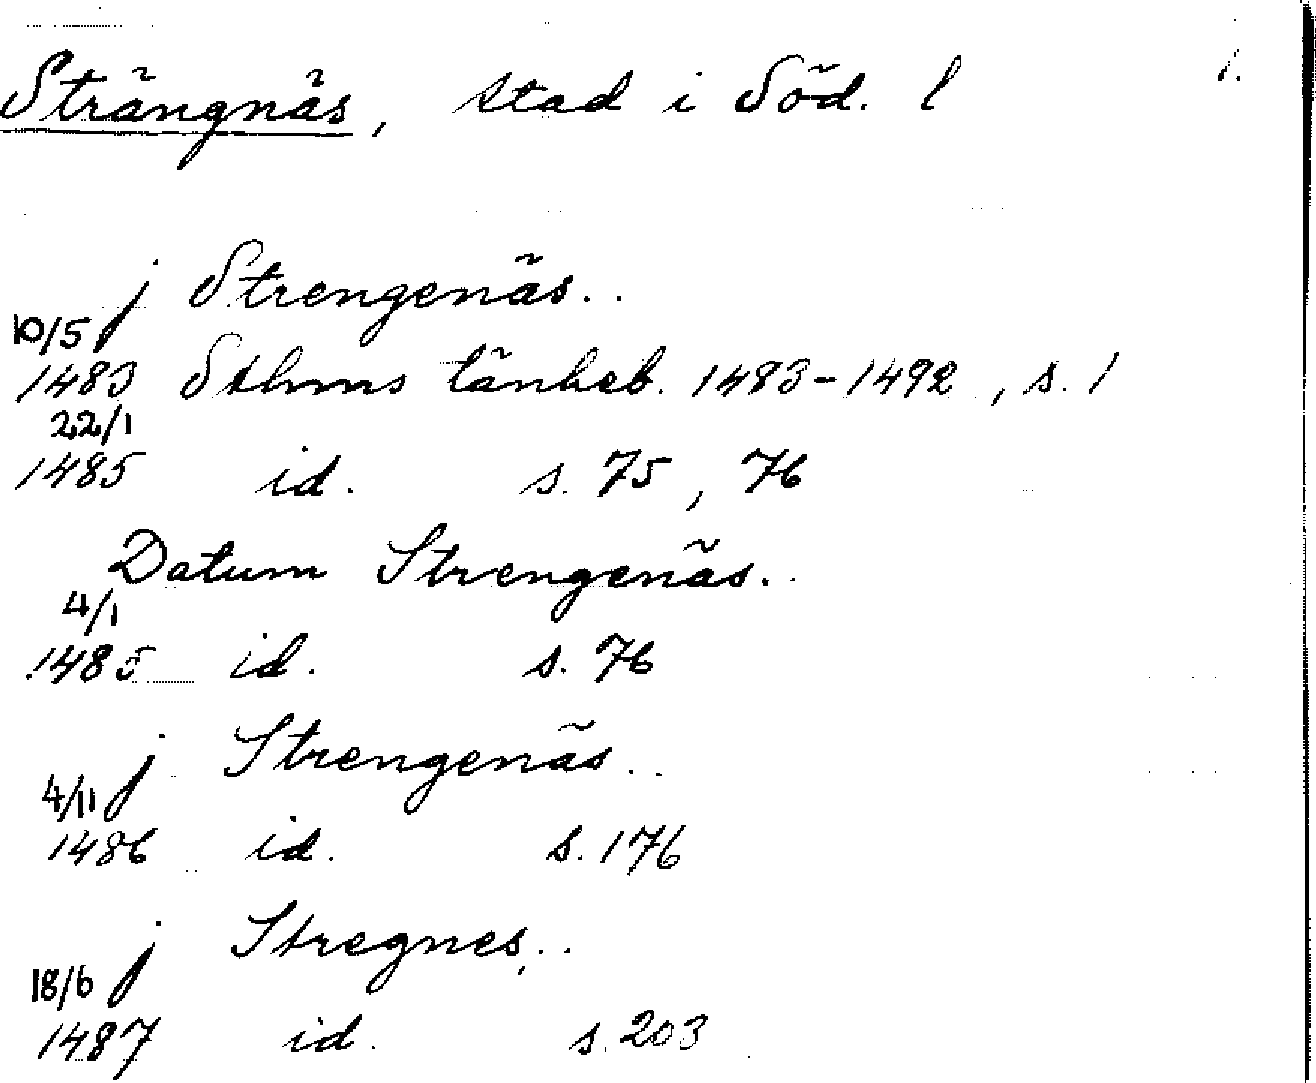 Strängnäs, stad i Söd. l 1.
j Strengenäs..
10/5
1483 Sthms tänkeb. 1483-1492, s. 1
22/1
1485 id. s. 75, 76
Datum Strengenäs..
4/1
1485 id. s. 76
j Strengenäs..
4/11
1486 id. s. 176
j Stregnes..
18/6
1487 id. s. 203